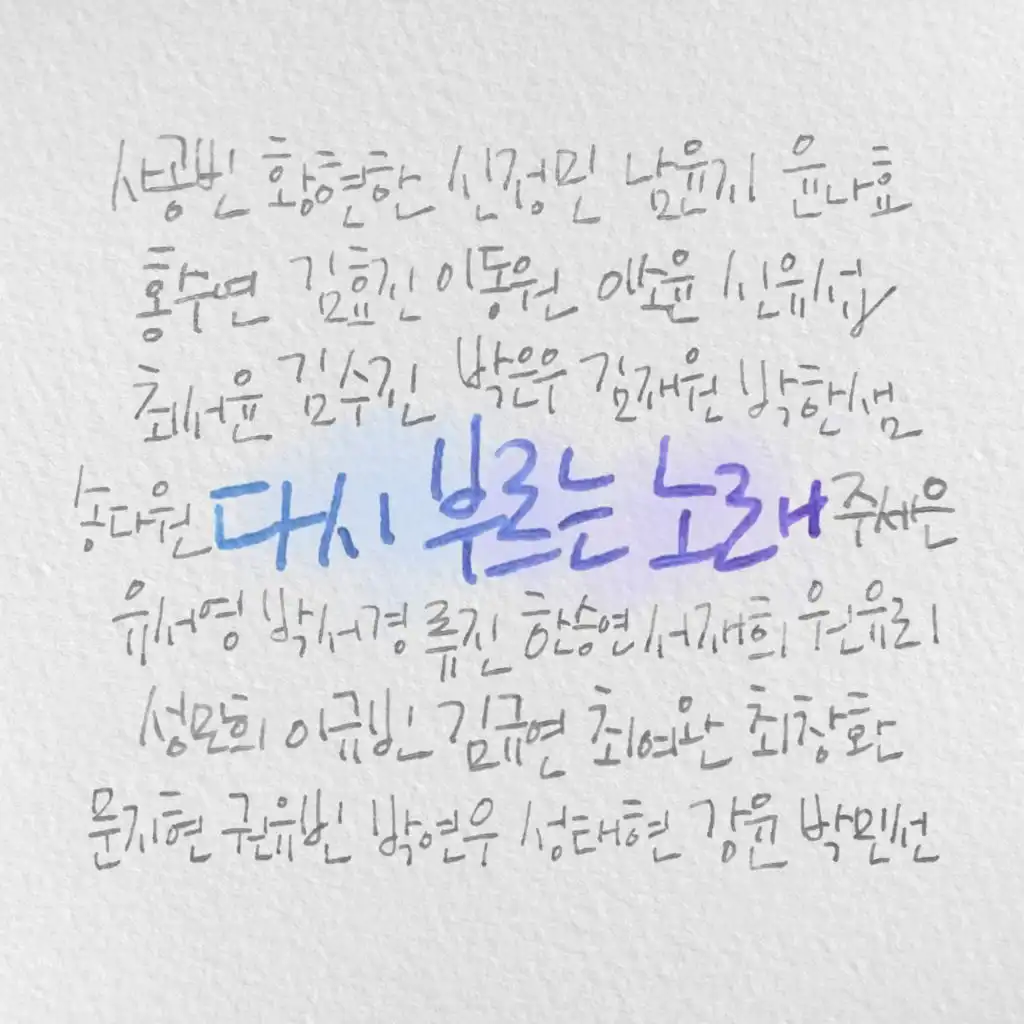 사공빈 황현한 신정민 남윤지 윤나효
홍수연 김효진 이동원 이소윤 신유섭
최서윤 김수진 박은우 김재원 박한샘
송다원 다시 부르는 노래 주세은
유서영 박서경 류진 한승연 서재희 원유리
성모희 이규빈 김규연 최여완 최창환
문지현 권유빈 박연우 성태현 강윤 박민선